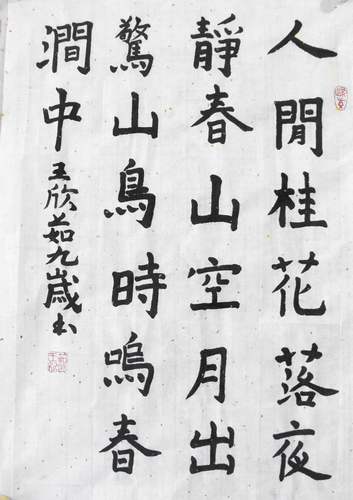 人閒桂花落夜
靜春山空月出
驚山鳥時鳴春
澗中王欣茹九歲书